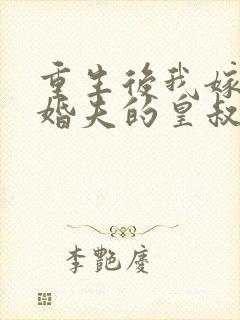 重生後我嫁
婚夫的皇叔
李艷慶